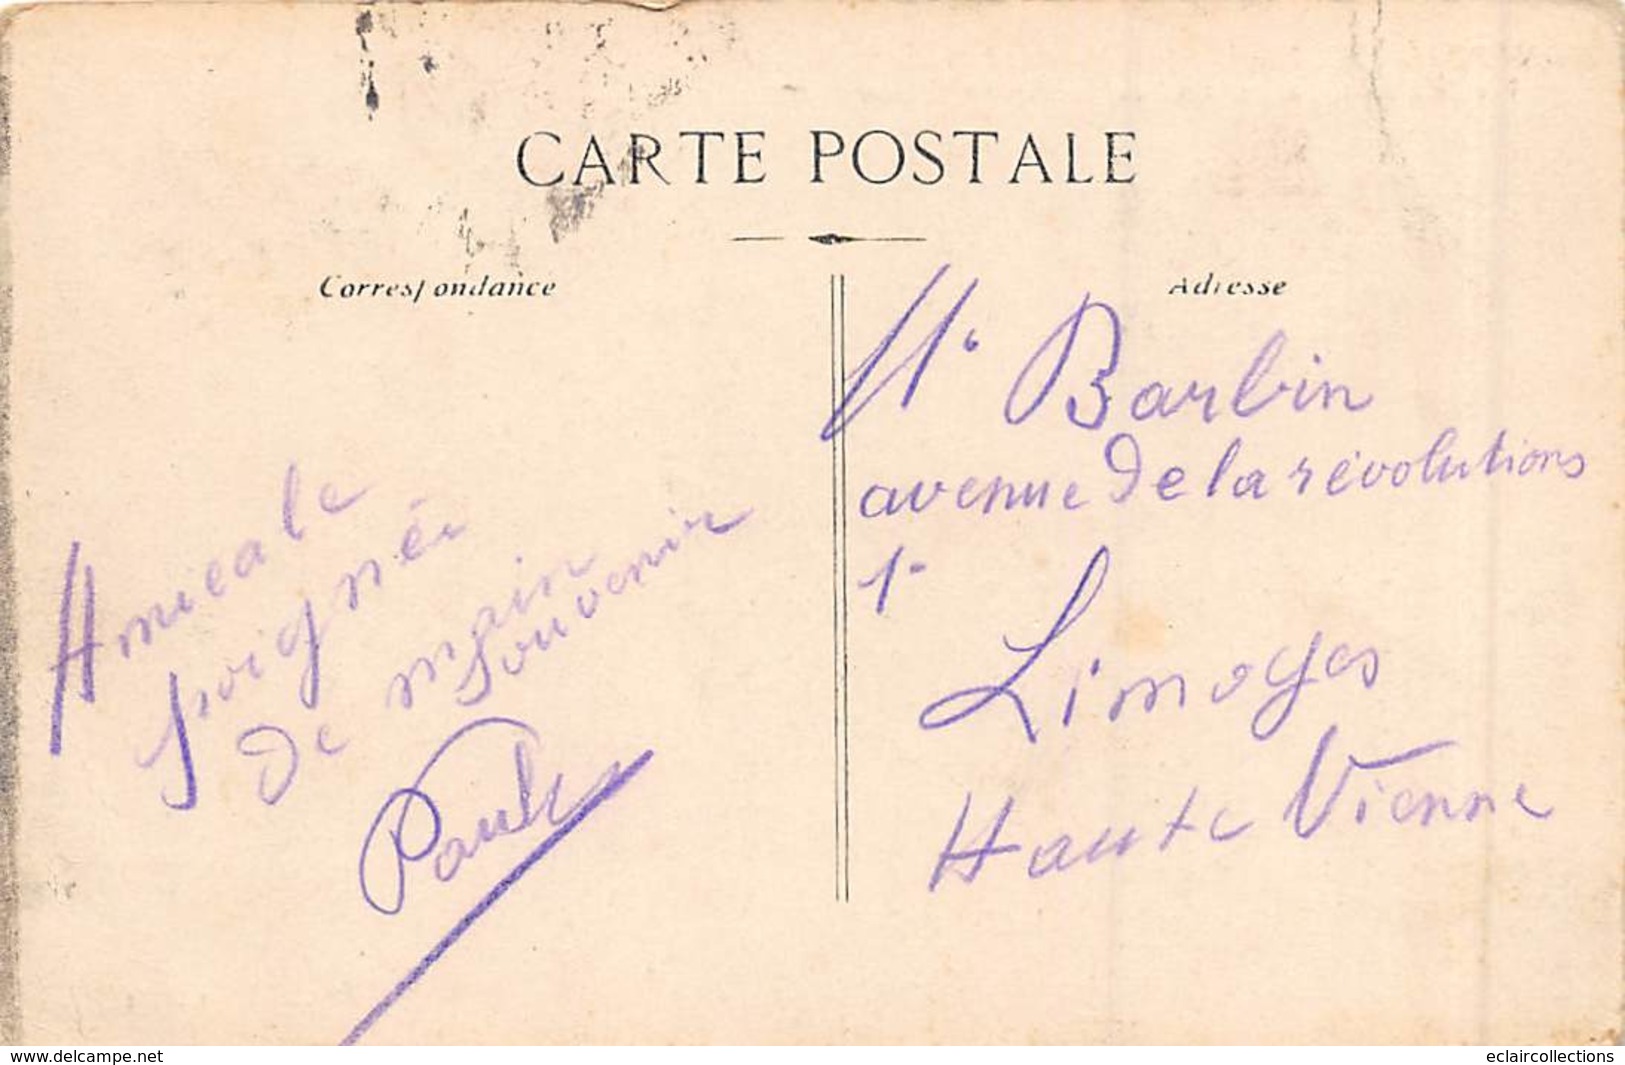 CARTE POSTALE
Correspondance
Adresse
Amicale
poignée
de main
souvenir
Mr Barbin
avenue de la révolutions
1.
Limoges
Haute Vienne
www.delcampe.net
eclaircollections